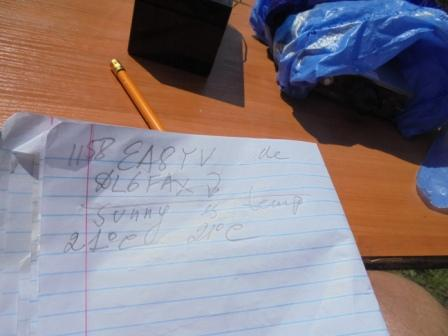 1158 EA8TV de
ØL6FAX
Sunny is temp
21°C 21°C